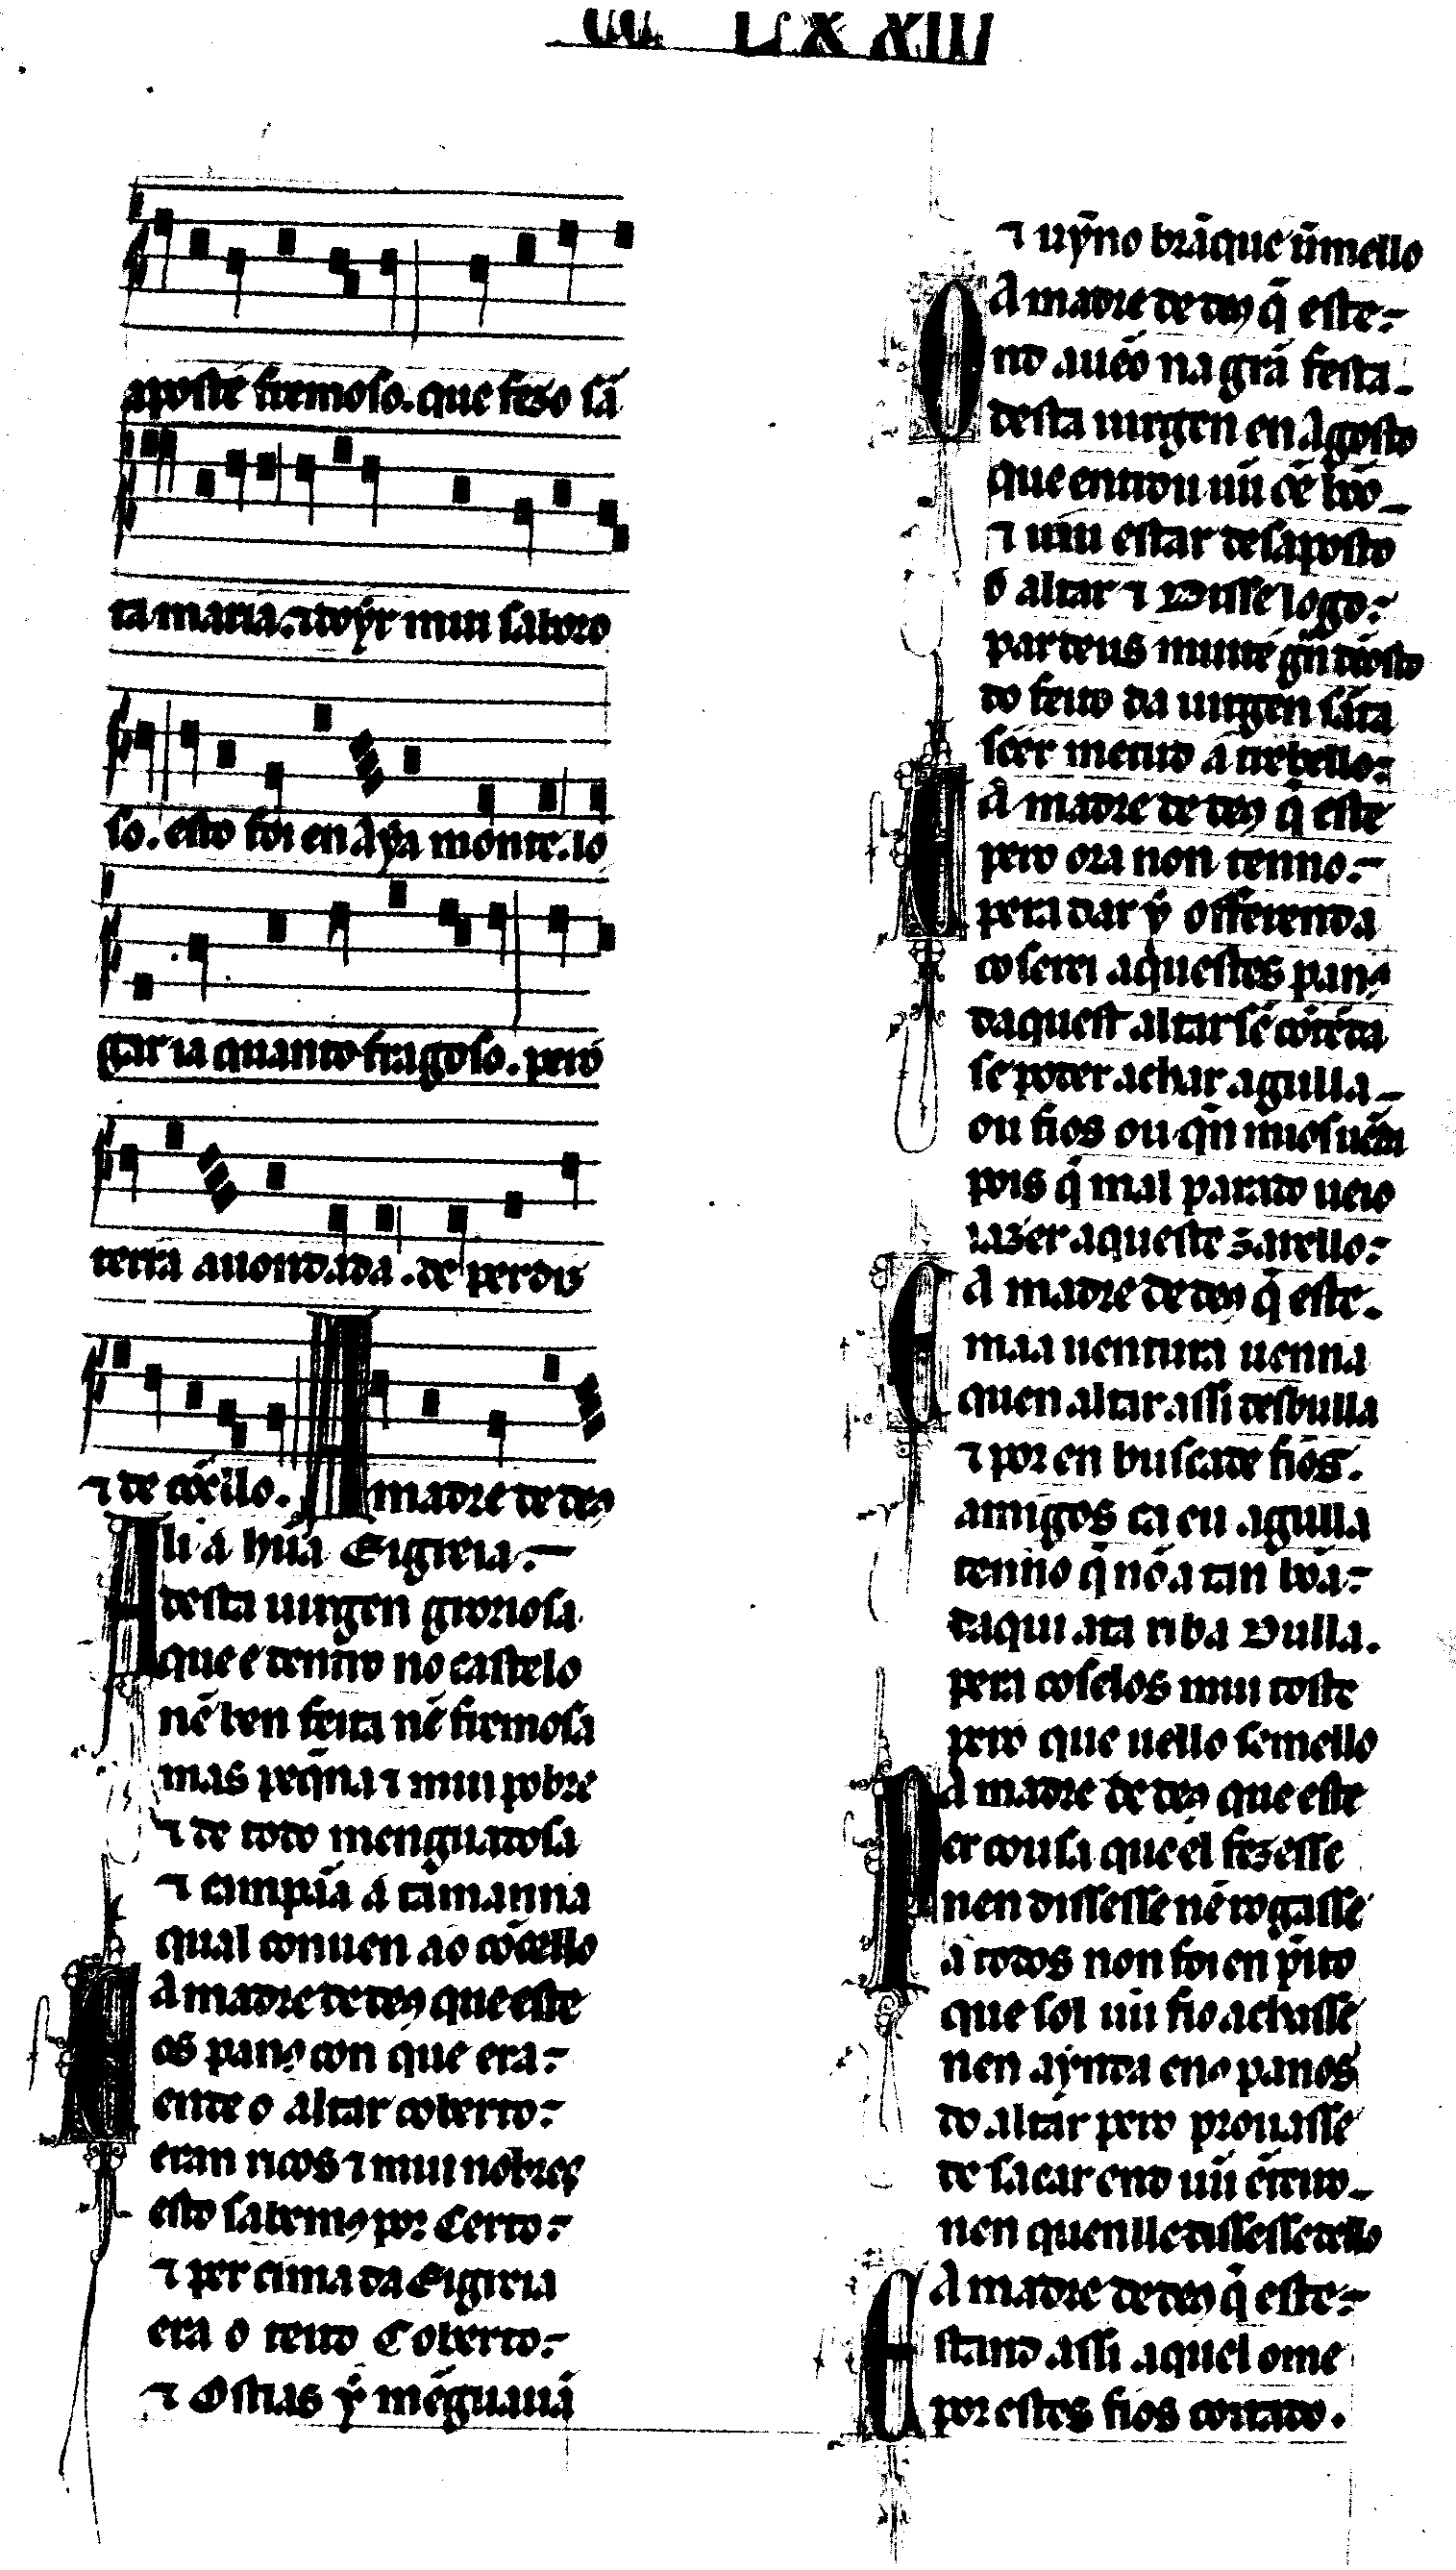 CC LXXIII
aposte fremoso. que fezo sã
ta maria. ⁊ doyr mui saboro
so. esto foi en Aya monte. lo
gar ia quanto fragoso. pero
terra auondada. de perdiz
⁊ de cõello. A madre de deꝯ
Ali á hũa Eigreia.
desta uirgen groriosa
que é dentro no castelo
nẽ ben feita nẽ fremosa
mas peq̃na ⁊ mui pobre
⁊ de todo menguadosa
⁊ cãpãa á tamanna
qual conuen ao cõcello
A madre de deꝯ que este
Os panꝯ con que era
ente o altar coberto
eran ricos ⁊ mui nobres
esto sabemꝯ por Certo
⁊ per cima da Eigreia
era o teito Coberto
⁊ Ostias ý mẽguauã
⁊ uỹno brãque ũmello
A madre de deꝯ q̃ este
Ond aueo na grã festa
desta uirgen en Agosto
que entrou uũ ome bõo
⁊ uiu estar desaposto
o altar ⁊ Disse logo
par deus muit é gñ dẽosto
do feito da uirgen sãta
seer metud a trebello
A madre de deꝯ q̃ este
E pero ora non tenno
pera dar ý offerenda
coserei aquestes panꝯ
daquest altar sẽ cõtẽda
se poder achar agulla
ou fios ou q̃n mios uẽda
pois q̃ mal parado ueio
iazer aqueste zarello
A madre de deꝯ q̃ este
E maa uentura uenna
quen altar assi desbulla
⁊ por en buscade fios.
amigos ca eu agulla
tenno q̃ nõ a tan bõa
daqui ata riba Dulla.
pera coselos mui toste
pero que uello semello
A madre de deꝯ que este
Per cousa que el fezesse
nen dissesse nẽ rogasse
a todos non foi en p̃ito
que sol uũ fio achasse
nen aynda enꝯ panos
do altar pero prouasse
de sacar end uũ ẽteiro
nen quen lle dissesse dello
A madre de deꝯ q̃ este
Estand assi aquel ome
por estes fios coitado.